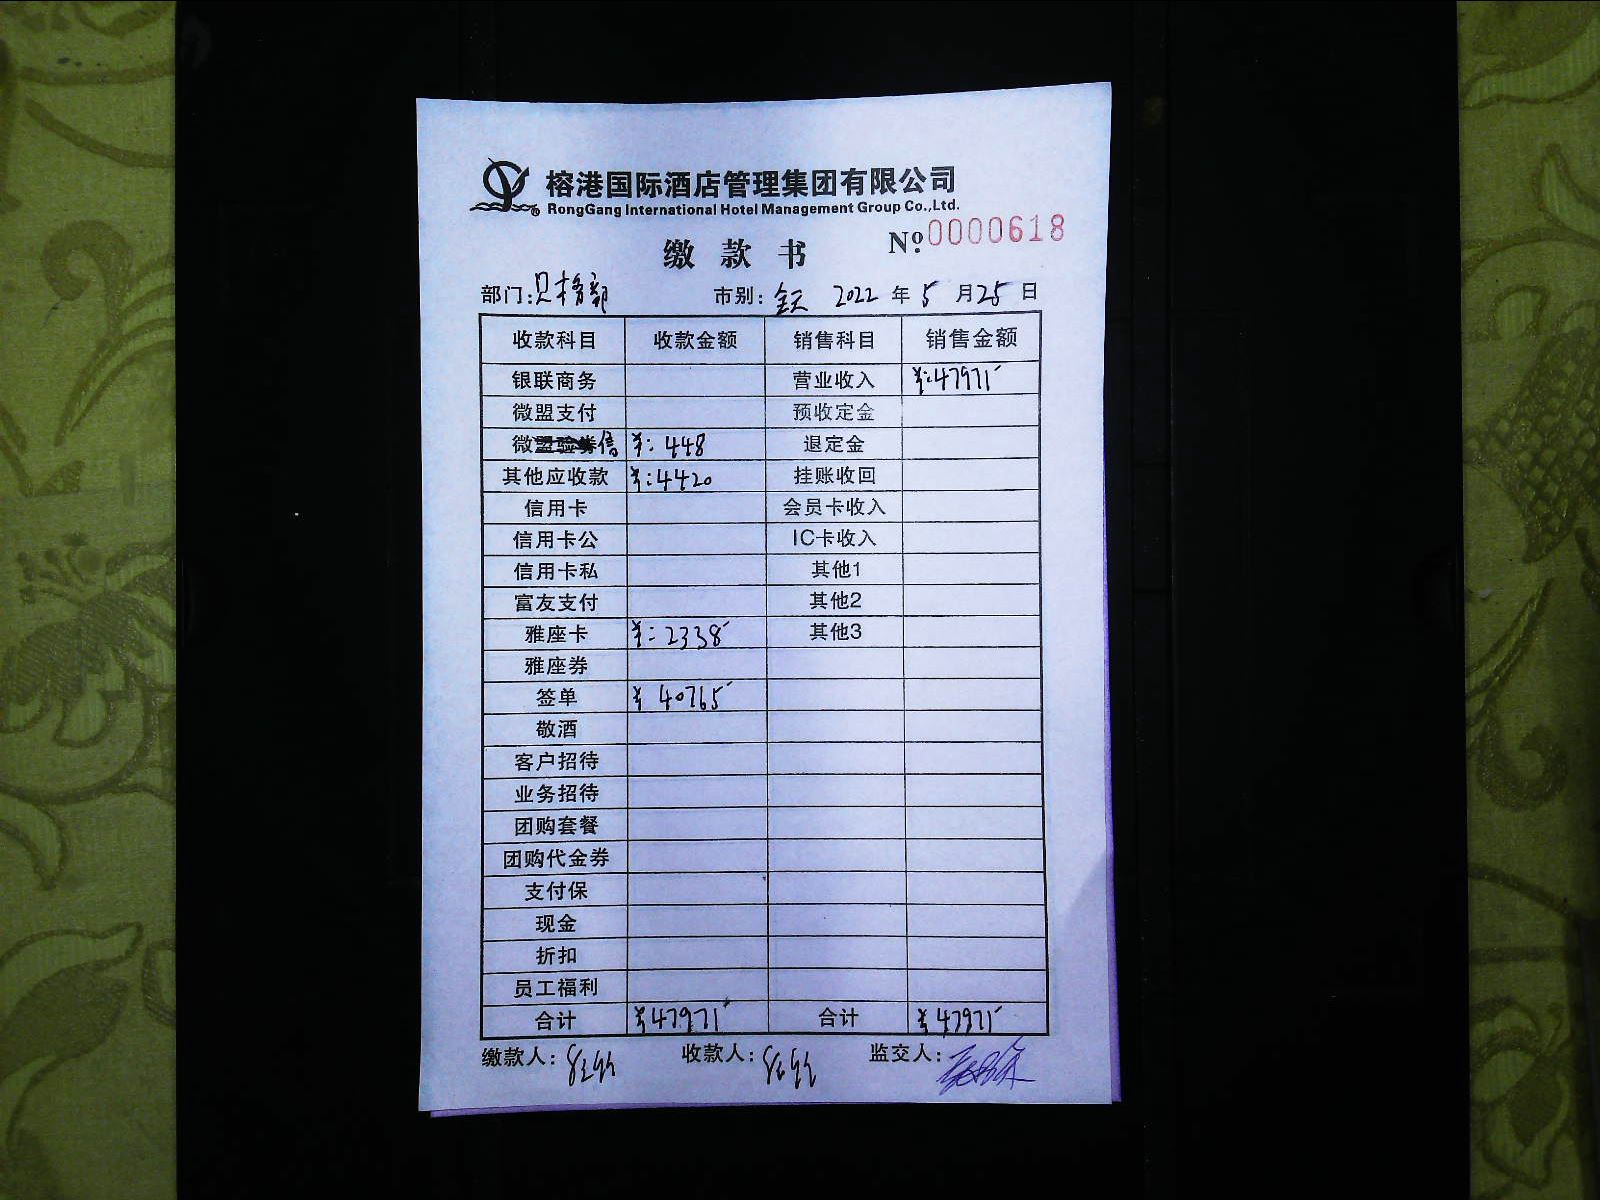 榕港国际酒店管理集团有限公司
RongGang International Hotel Management Group Co.,Ltd.
缴款书 Nº:0000618
部门: 市别:全天 2022 年 5 月 25 日
收款科目 收款金额 销售科目 销售金额
银联商务 营业收入 ¥:47971
微盟支付 预收定金
微信 ¥:448 退定金
其他应收款 ¥:4420 挂账收回
信用卡 会员卡收入
信用卡公 IC卡收入
信用卡私 其他1
富友支付 其他2
雅座卡 ¥:2338 其他3
雅座券
签单 ¥ 40765
敬酒
客户招待
业务招待
团购套餐
团购代金券
支付保
现金
折扣
员工福利
合计 ¥47971 合计 ¥47971
缴款人: 收款人: 监交人: